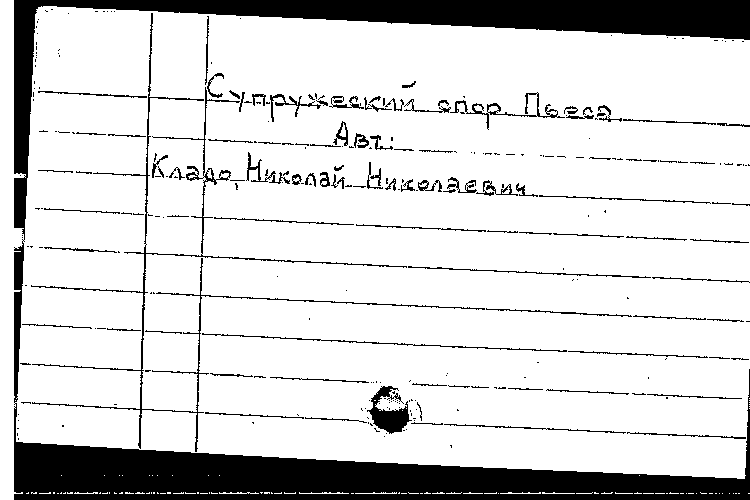 Супружеский спор. Пьеса.
Авт.:
Кладо, Николай Николаевич